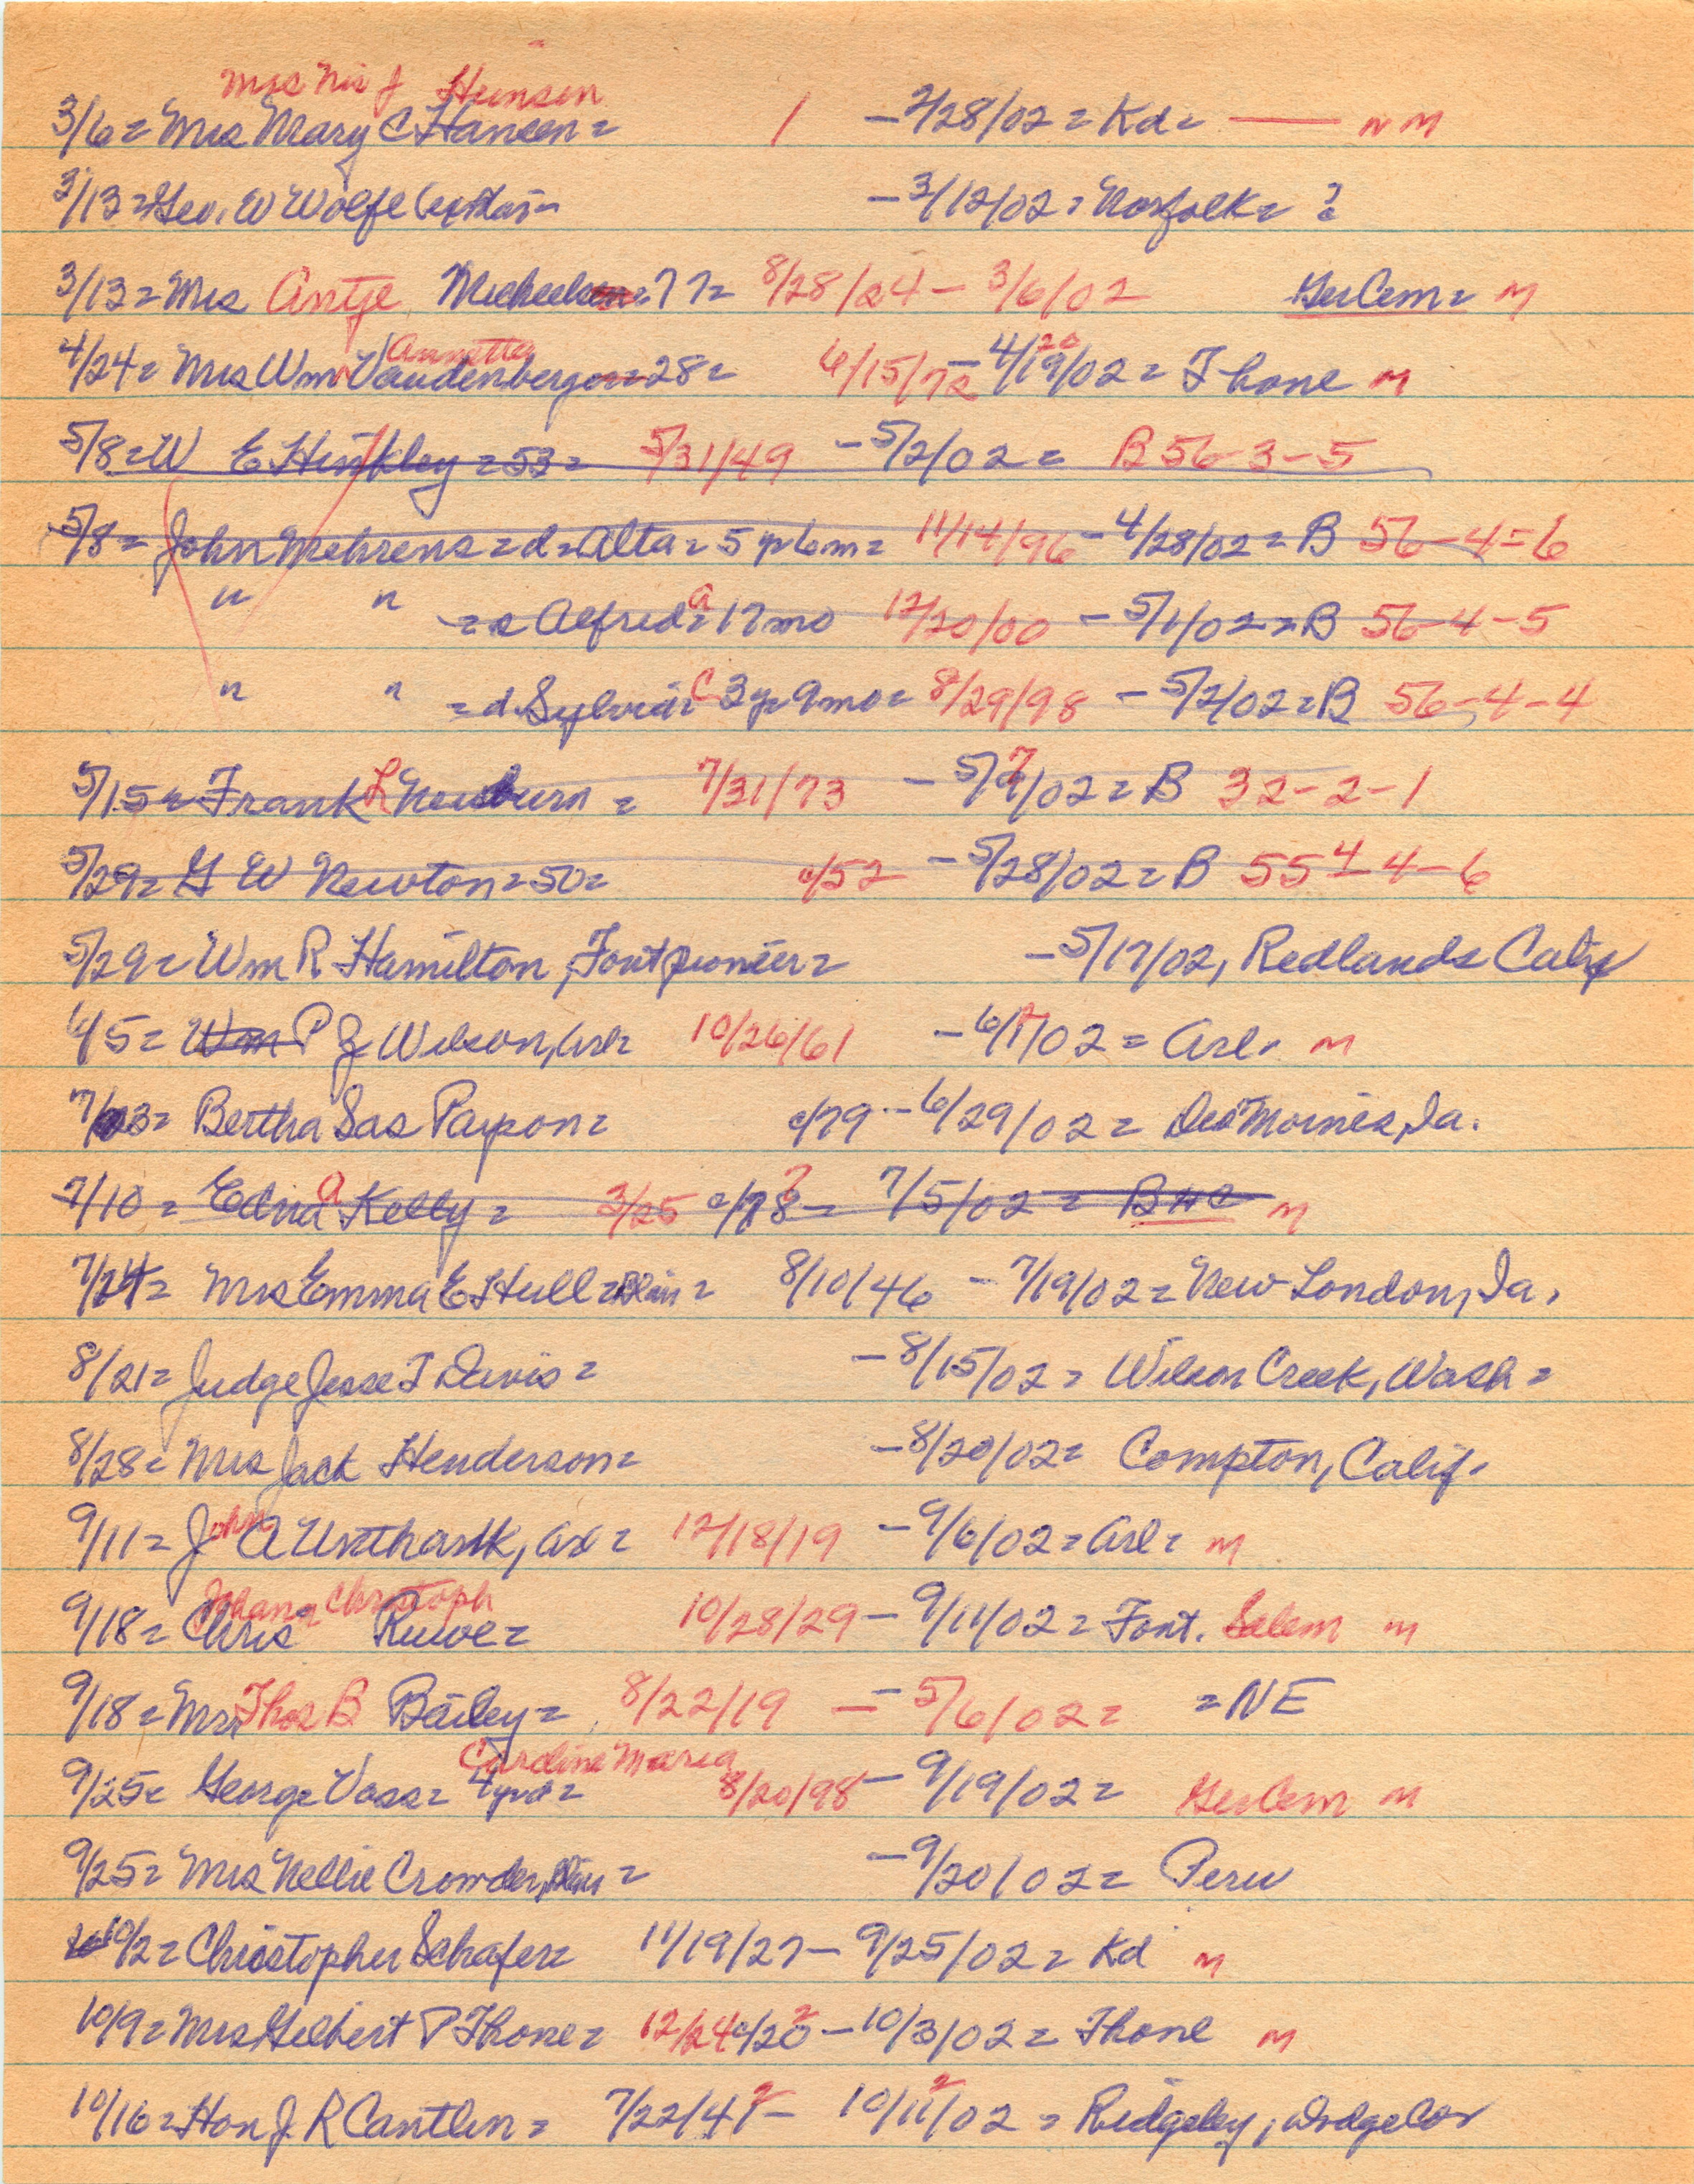 Mrs Nis J Hansen
3/6= Mrs Mary C Hansen= / -2/28/02= Kd= — n M
3/13=Geo. W Wolfe -3/12/02= Norfolk= ?
3/13=Mrs Antje Micheelsen=77= 8/28/24- 3/6/02 GerCem= M
Annetta 20
4/24= Mrs Wm Vandenberg=28= 6/15/72 -4/19/02= Thone M
5/8=W E Hinkley=53= 5/31/49 -5/2/02= B 56-3-5
5/8= John Mehrens=d=Alta=5 yr6m= 11/14/96-4/28/02=B 56-4=6
" " =s Alfred a=17mo 12/20/00 -5/1/02=B 56-4-5
" " =d Sylvia C=3yr9mo= 8/29/98 -5/2/02=B 56-4-4
5/15= Frank L Newburn= 7/31/73 -5/7/02=B 32-2-1
5/29= G W Newton=50= c/52 -5/28/02=B 55-4-6
5/29= Wm R Hamilton, Font pioneer= -5/17/02, Redlands Calif
6/5= Wm P J Wilson, Arl= 10/26/61 -6/1/02= Arl. M
7/3= Bertha Sas Paypon= c/79 -6/29/02= Des Moines, Ia.
7/10= Edna A Kelly= 3/25 c/78 ?- 7/5/02= BHC M
7/24= Mrs Emma E Hull=Blair= 8/10/46 -7/19/02= New London, Ia.
8/21= Judge Jesse T Davis= -8/15/02= Wilson Creek, Wash=
8/28= Mrs Jack Henderson= -8/20/02= Compton, Calif.
9/11= John A Unthank, Arl= 12/18/19 -9/6/02=Arl= M
Johann Christoph
9/18= Chris Ruwe= 10/28/29-9/11/02= Font. Salem M
9/18=Mrs Thos B Bailey= 8/22/19 — -5/6/02= =NE
Caroline Maria
9/25= George Voss= 4yrd= 8/20/98-9/19/02= GerCem M
9/25= Mrs Nellie Crowder, Blair= -9/20/02= Peru
10/2=Christopher Schafer= 11/19/27- 9/25/02= Kd M
10/9=Mrs Gilbert P Thone= 12/24 c/20 2-10/3/02= Thone M
10/16=Hon J. R Cantlin= 7/22/41 2- 10/11/02 2= Ridgeley, Dodge Co=